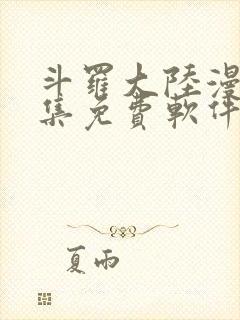 斗羅大陸漫
集免費軟件
夏雨